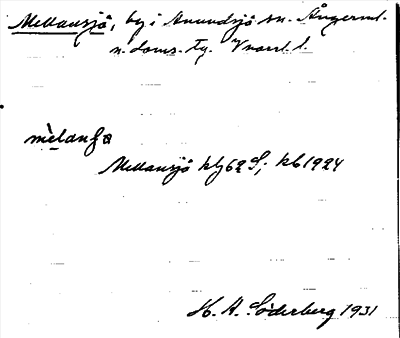 Mellansjö, by i Anundsjö sn. Ångerml.
n. doms. Ty. Vnorrl. l.
mèlanʃɑ
Mellansjö klj 62 S; kb 1924
H. A. Söderberg 1931